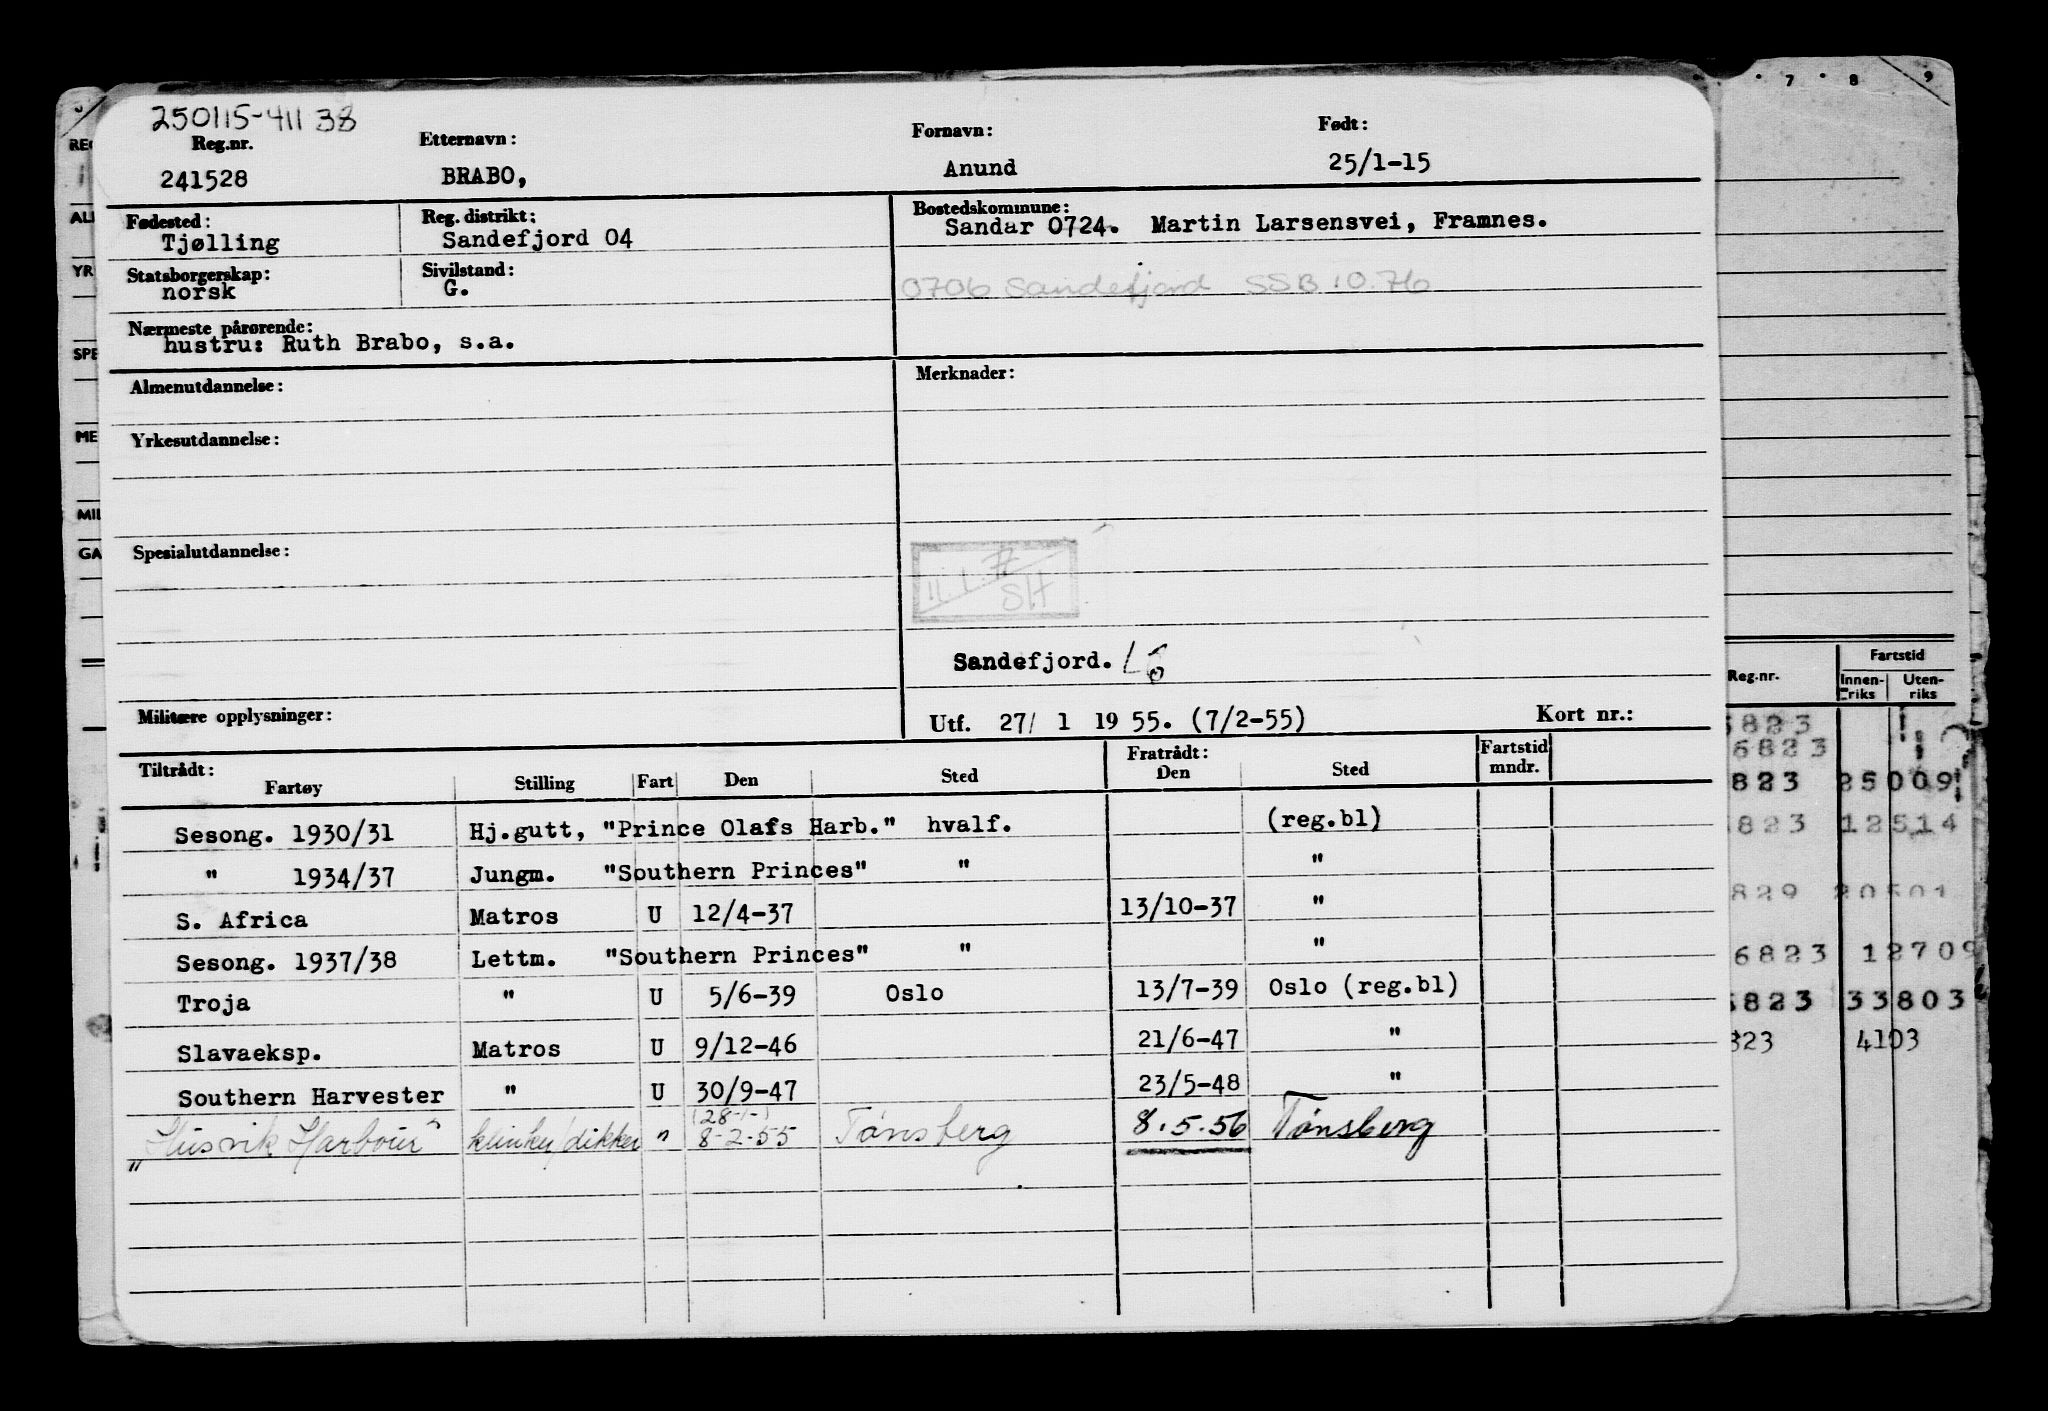 250115-41138
Reg.nr. Etternavn: Fornavn: Født:
241528 BRABO, Anund 25/1-15
Fødested: Reg. distrikt: Bostedskommune:
Tjølling Sandefjord 04 Sandar 0724. Martin Larsensvei, Framnes.
Statsborgerskap: Sivilstand:
norsk G. 0706 Sandefjord SSB 10.76
Nærmeste pårørende:
hustru: Ruth Brabo, s.a.
Almenutdannelse: Merknader:
Yrkesutdannelse:
Spesialutdannelse:
SH
Sandefjord.
Militære opplysninger: Utf. 27/ 1 19 55. (7/2-55) Kort nr.:
Tiltrådt: Fratrådt: Fartstid
Fartøy Stilling Fart Den Sted Den Sted mndr.
Sesong. 1930/31 Hj.gutt, "Prince Olafs Harb." hvalf. (reg.bl)
" 1934/37 Jungm. "Southern Princes" " "
S. Africa Matros U 12/4-37 13/10-37 "
Sesong. 1937/38 Lettm. "Southern Princes" " "
Troja " U 5/6-39 Oslo 13/7-39 Oslo (reg.bl)
Slavaeksp. Matros U 9/12-46 21/6-47 "
Southern Harvester " U 30/9-47 23/5-48 "
(28-1-)
„Husvik Harbour" klinker/dikker " 8-2-55 Tønsberg 8.5.56 Tønsberg
7 8 9
REG
ALM
YR
SPE
ME
MIL
GA
Fartstid
Reg.nr. Innenriks Utenriks
823
6823
823 25009
823 12514
829 20501
6823 12709
6823 33803
823 4103